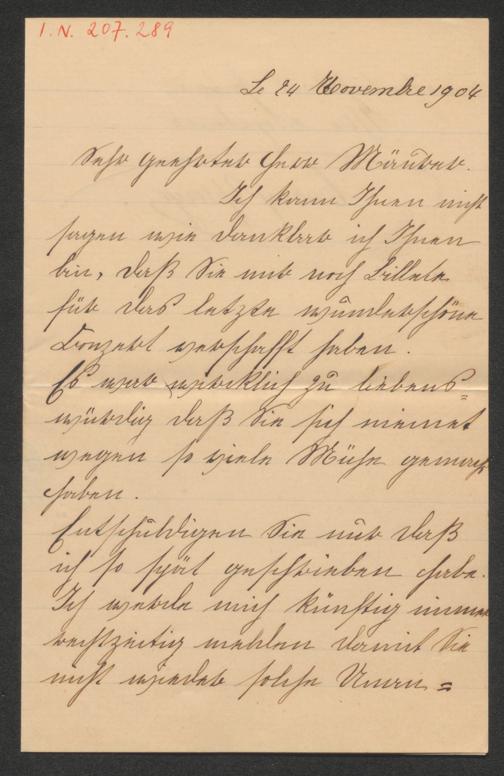 I. N. 207.289
Le 24 Novembre 1904
Sehr geehrter Herr Mäurer.
Ich kann Ihnen nicht
sagen wie dankbar ich Ihnen
bin, daß Sie mir noch Billete
für das letzte wunderschöne
Conzert verschafft haben.
Es war wircklich zu liebens=
würdig daß Sie sich meinet
wegen so viele Mühe gemacht
haben.
Entschuldigen Sie nur daß
ich so spät geschrieben habe.
Ich werde mich künftig immer
rechtzeitig melden damit Sie
nicht wieder solche Unan=